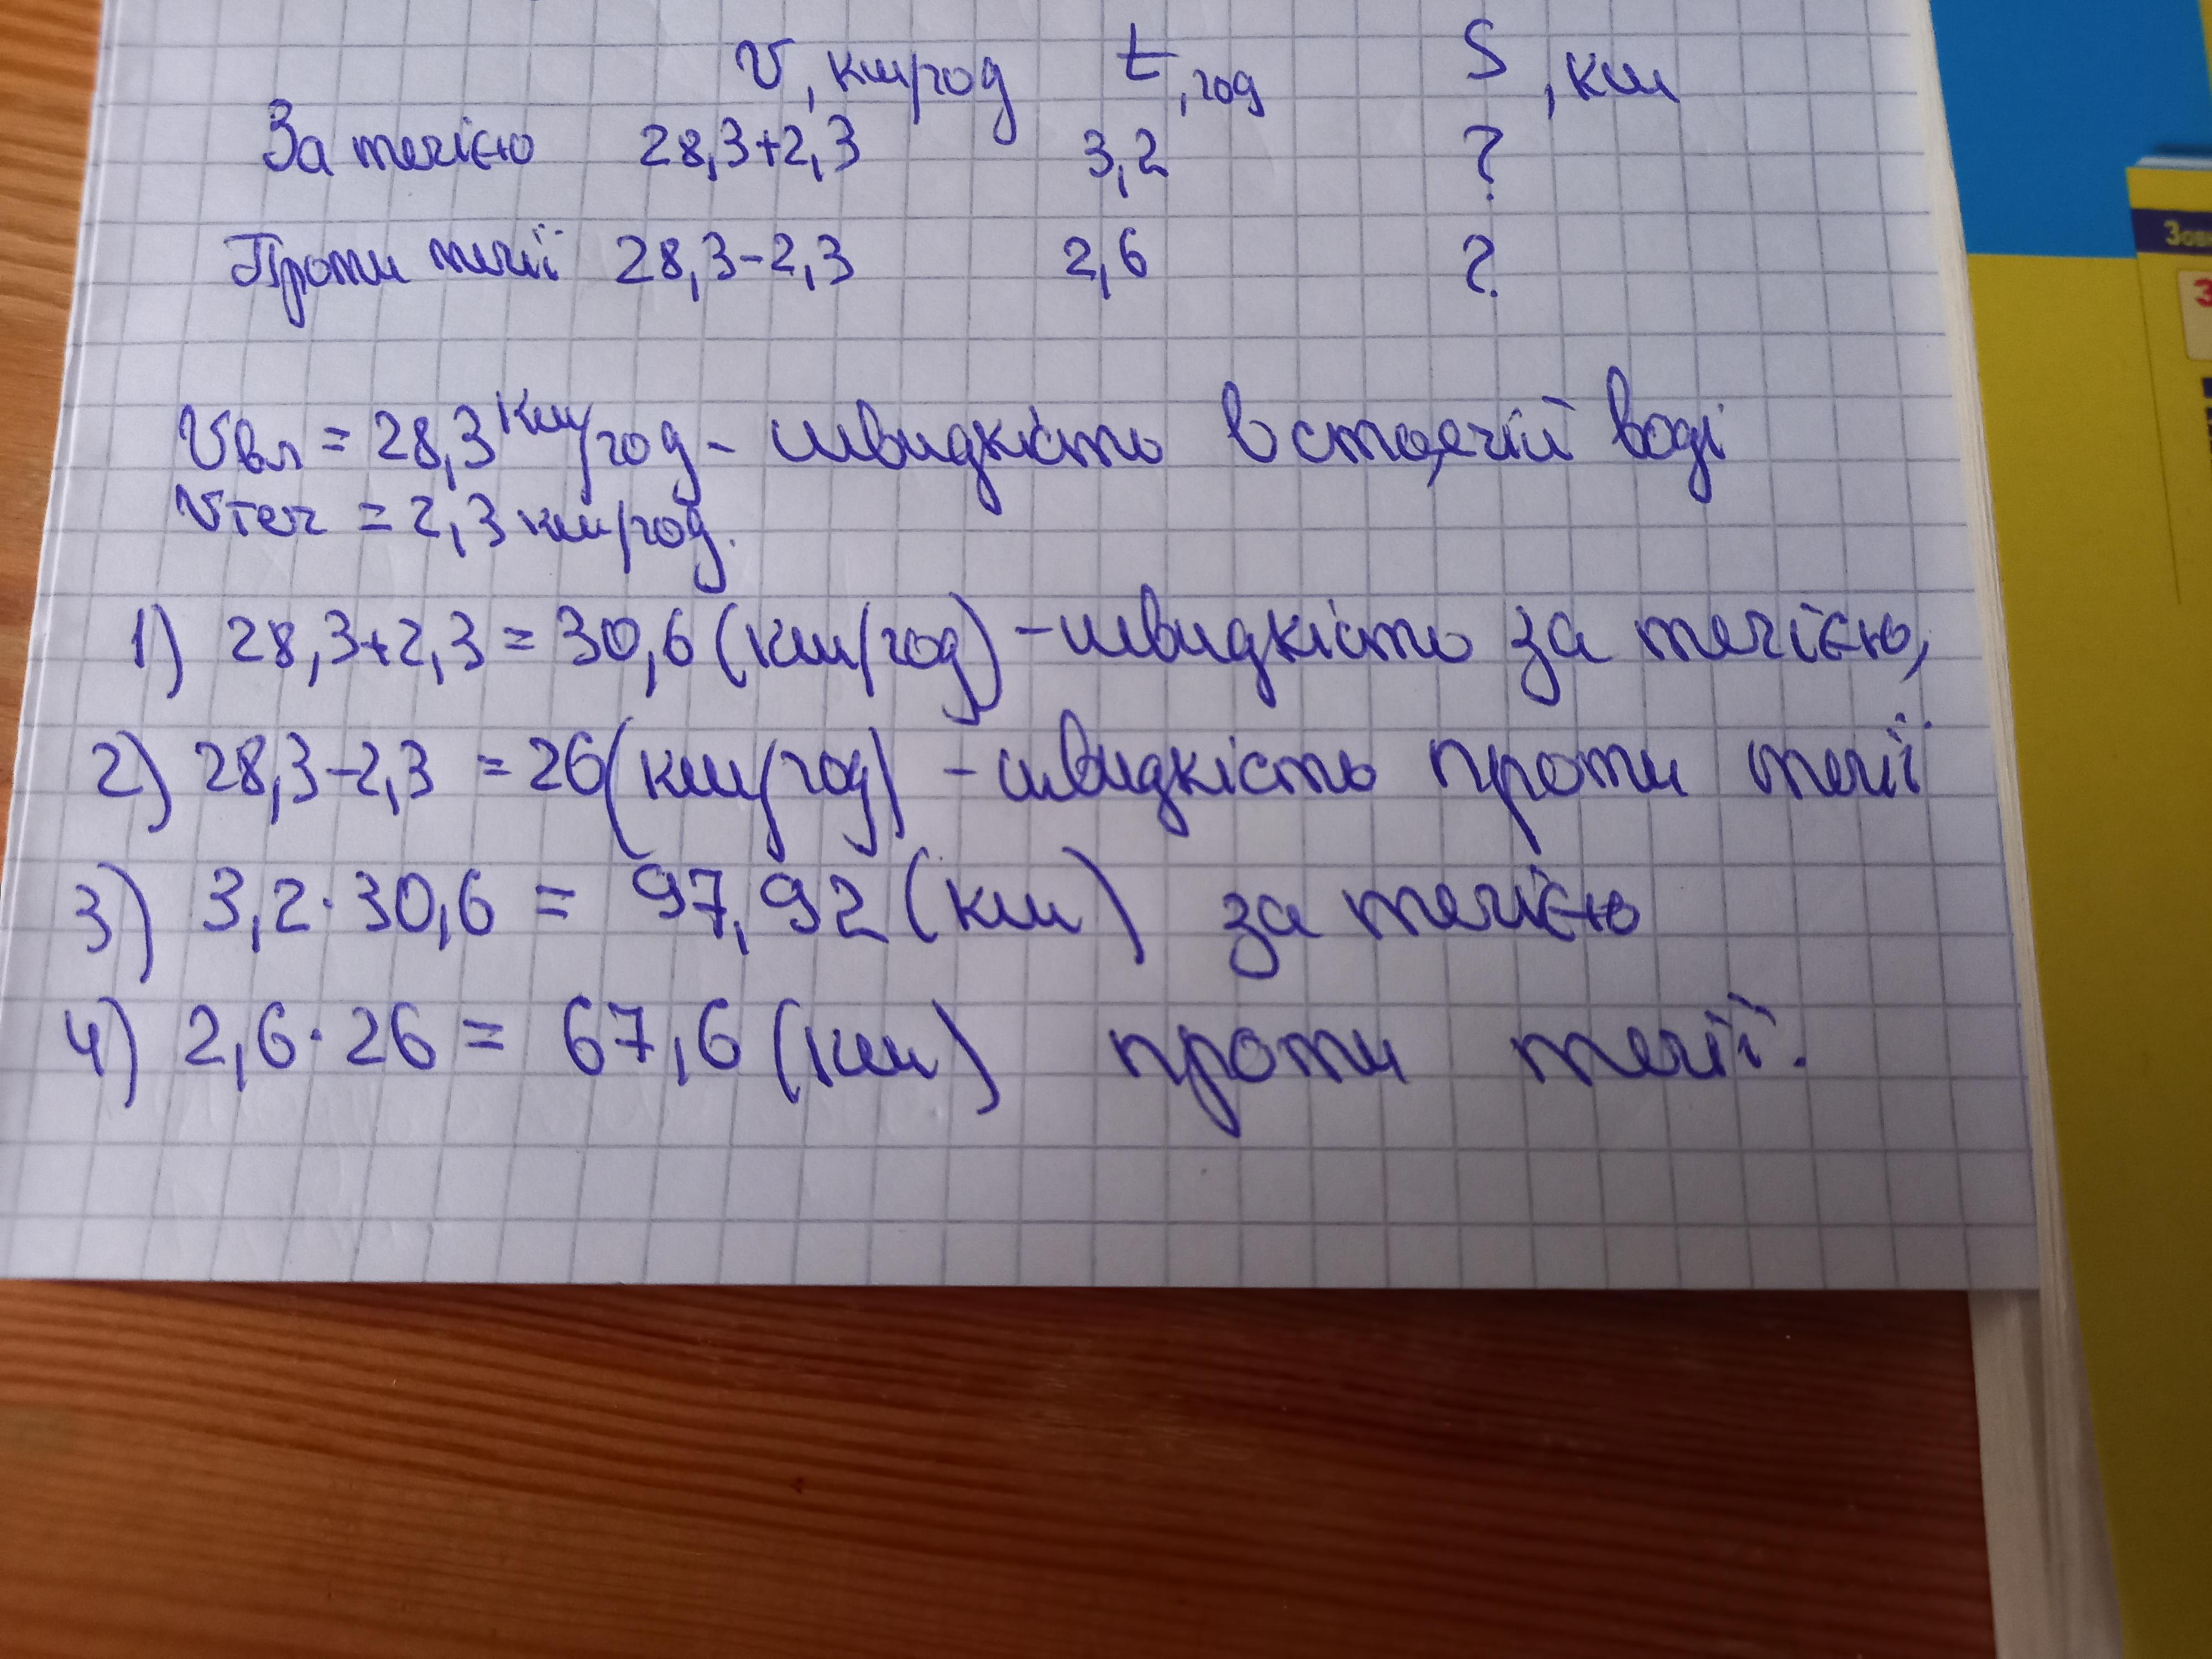 v, км/год t, год S, км
За течією 28,3+2,3 3,2 ?
Проти течії 28,3-2,3 2,6 ?
vвл = 28,3 км/год - швидкість в стоячій воді
vтеч = 2,3 км/год.
1) 28,3+2,3 = 30,6 (км/год) - швидкість за течією,
2) 28,3-2,3 = 26 (км/год) - швидкість проти течії
3) 3,2·30,6 = 97,92 (км) за течією
4) 2,6·26 = 67,6 (км) проти течії.